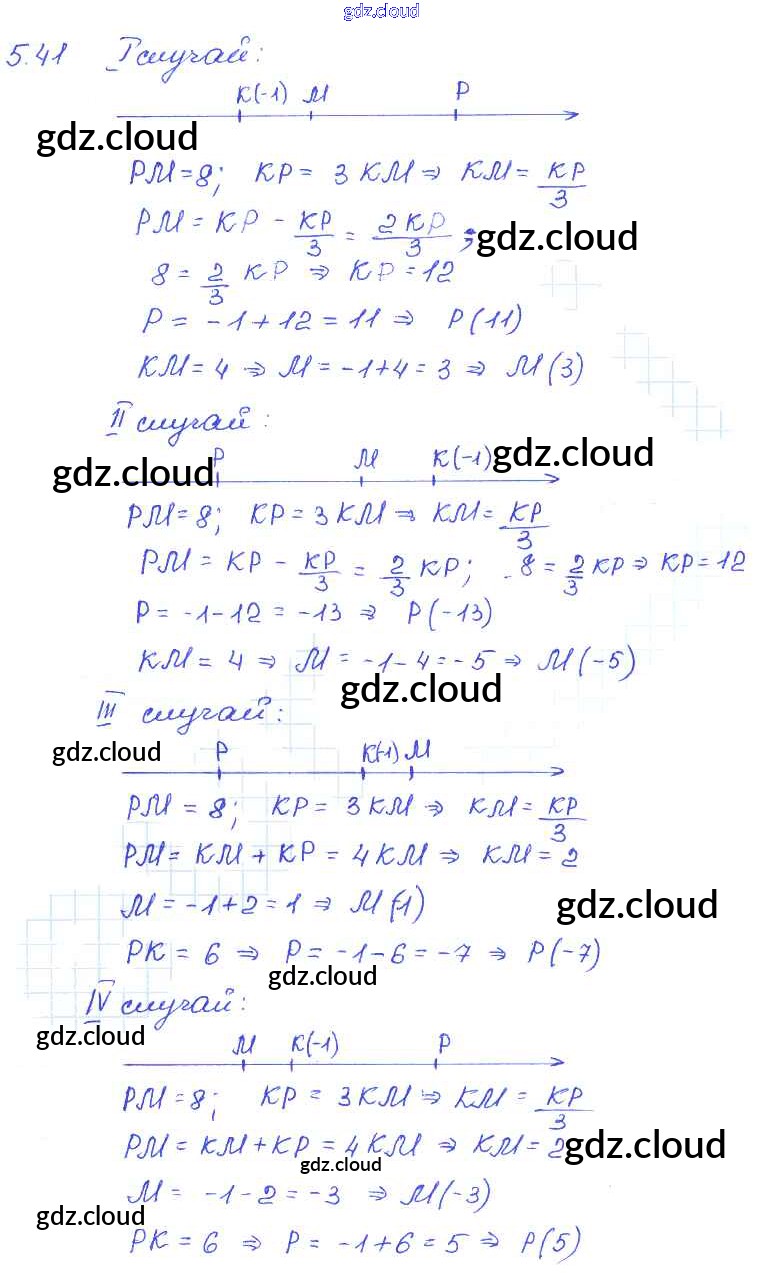 gdz.cloud
5.41 I случай:
K(-1) M P
gdz.cloud
PM = 8; KP = 3 KM ⇒ KM = KP/3
PM = KP - KP/3 = 2KP/3 ; gdz.cloud
8 = 2/3 KP ⇒ KP = 12
P = -1 + 12 = 11 ⇒ P(11)
KM = 4 ⇒ M = -1+4 = 3 ⇒ M(3)
II случай:
P M K(-1) gdz.cloud
gdz.cloud
PM = 8; KP = 3 KM ⇒ KM = KP/3
PM = KP - KP/3 = 2/3 KP; 8 = 2/3 KP ⇒ KP = 12
P = -1-12 = -13 ⇒ P(-13)
KM = 4 ⇒ M = -1-4 = -5 ⇒ M(-5)
gdz.cloud
III случай:
gdz.cloud P K(-1) M
PM = 8; KP = 3 KM ⇒ KM = KP/3
PM = KM + KP = 4 KM ⇒ KM = 2
M = -1+2 = 1 ⇒ M(1) gdz.cloud
PK = 6 ⇒ P = -1-6 = -7 ⇒ P(-7)
gdz.cloud
IV случай:
gdz.cloud M K(-1) P
PM = 8; KP = 3 KM ⇒ KM = KP/3
PM = KM + KP = 4 KM ⇒ KM = 2 gdz.cloud
gdz.cloud
M = -1-2 = -3 ⇒ M(-3)
gdz.cloud
PK = 6 ⇒ P = -1+6 = 5 ⇒ P(5)